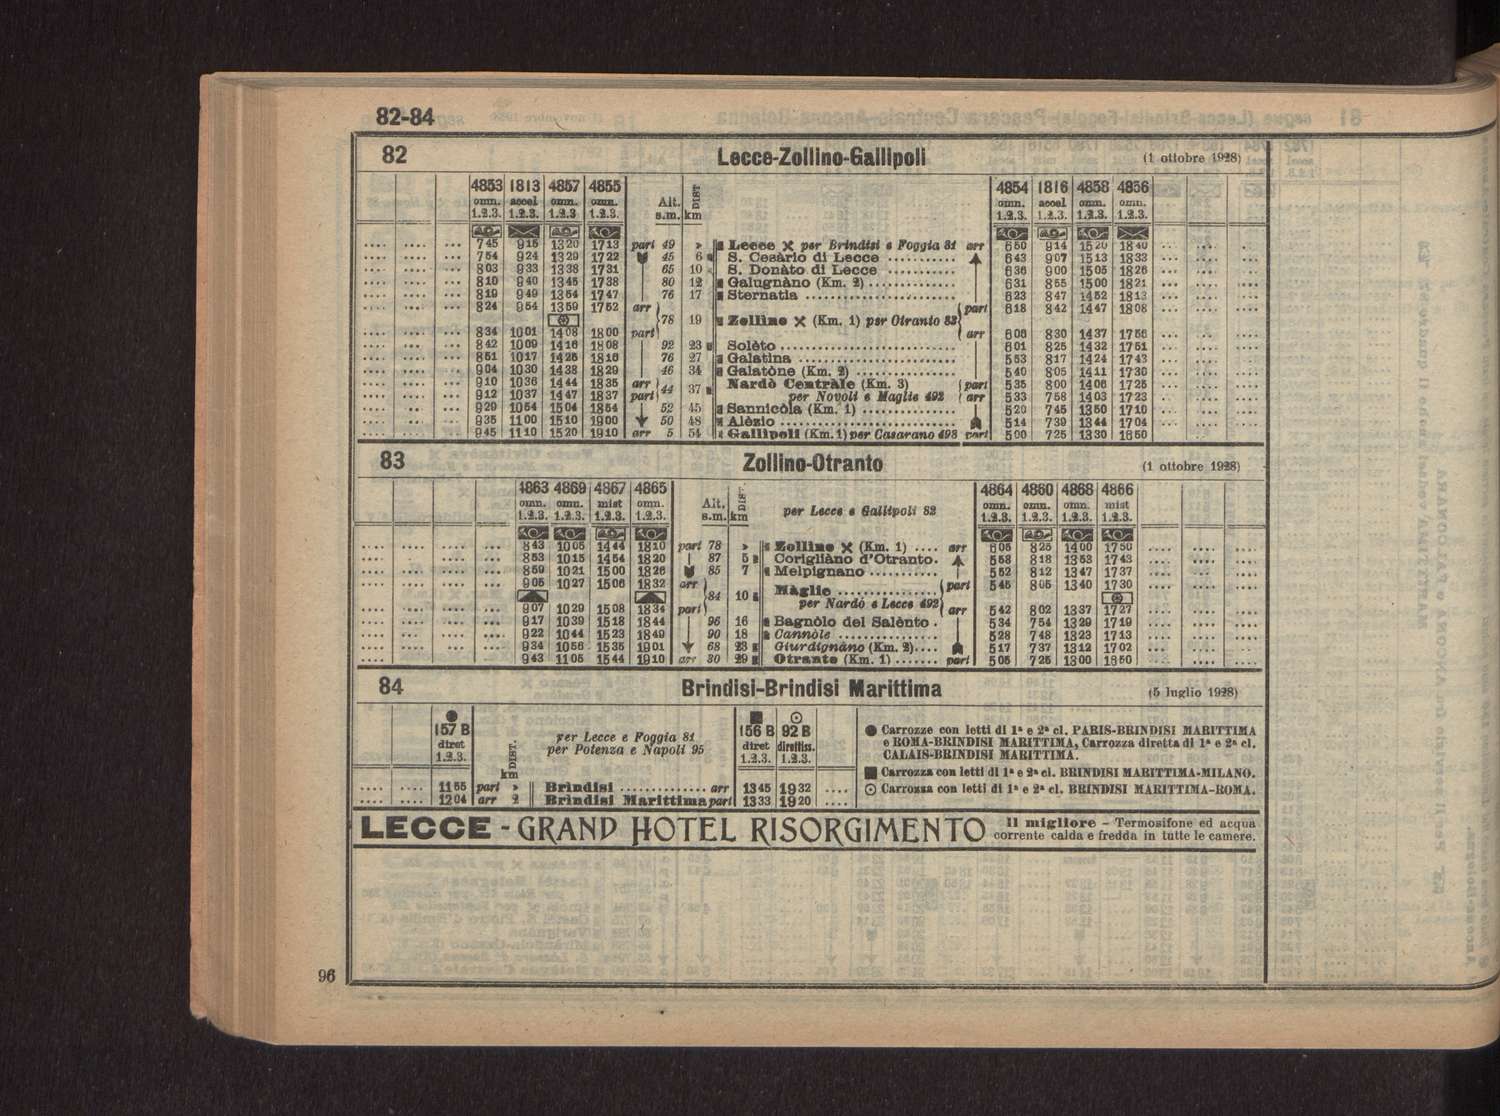 82-84
82 Lecce-Zollino-Gallipoli (1 ottobre 1928)
4853 1813 4857 4855 4854 1816 4858 4856
omn. accel omn. omn. Alt. DIST omn. accel omn. omn.
1.2.3. 1.2.3. 1.2.3 1.2.3. s.m. km 1.2.3. 1.2.3. 1.2.3. 1.2.3.
7 45 9 15 13 20 17 13 part 49 » Lecce per Brindisi e Foggia 81 arr 6 50 9 14 15 20 18 40
7 54 9 24 13 29 17 22 45 6 S. Cesàrio di Lecce ........... 6 43 9 07 15 13 18 33
8 03 9 33 13 38 17 31 65 10 S. Donàto di Lecce ........... 6 36 9 00 15 05 18 26
8 10 9 40 13 45 17 38 80 12 Galugnàno (Km. 2) .............. 6 31 8 55 15 00 18 21
8 19 9 49 13 54 17 47 76 17 Sternatia ........................ 6 23 8 47 14 52 18 13
8 24 9 54 13 59 17 52 arr part 6 18 8 42 14 47 18 08
78 19 Zollino (Km. 1) per Otranto 83
8 34 10 01 14 08 18 00 part arr 6 06 8 30 14 37 17 56
8 42 10 09 14 16 18 08 92 23 Solèto ............................ 6 01 8 25 14 32 17 51
8 51 10 17 14 25 18 16 76 27 Galatina ......................... 5 53 8 17 14 24 17 43
9 04 10 30 14 38 18 29 46 34 Galatòne (Km. 2) ................ 5 40 8 05 14 11 17 30
9 10 10 36 14 44 18 35 arr 44 37 Nardò Centràle (Km. 3) part 5 35 8 00 14 06 17 25
9 12 10 37 14 47 18 37 part per Novoli e Maglie 492 arr 5 33 7 58 14 03 17 23
9 29 10 54 15 04 18 54 52 45 Sannicòla (Km. 1) ............... 5 20 7 45 13 50 17 10
9 35 11 00 15 10 19 00 50 48 Alèzio ............................ 5 14 7 39 13 44 17 04
9 45 11 10 15 20 19 10 arr 5 54 Gallipoli (Km. 1) per Casarano 493 part 5 00 7 25 13 30 16 50
83 Zollino-Otranto (1 ottobre 1928)
4863 4869 4867 4865 4864 4860 4868 4866
omn. omn. mist omn. Alt. DIST. per Lecce e Gallipoli 82 omn. omn. omn. mist
1.2.3. 1.2.3. 1.2.3. 1.2.3. s.m. km 1.2.3. 1.2.3. 1.2.3. 1.2.3.
8 43 10 05 14 44 18 10 part 78 » Zollino (Km. 1) .... arr 6 05 8 25 14 00 17 50
8 53 10 15 14 54 18 20 87 5 Coriglìàno d'Otranto. 5 58 8 18 13 53 17 43
8 59 10 21 15 00 18 26 85 7 Melpignano ........... 5 52 8 12 13 47 17 37
9 05 10 27 15 06 18 32 arr Màglie ................ part 5 45 8 05 13 40 17 30
84 10 per Nardó e Lecce 492
9 07 10 29 15 08 18 34 part arr 5 42 8 02 13 37 17 27
9 17 10 39 15 18 18 44 96 16 Bagnòlo del Salènto . 5 34 7 54 13 29 17 19
9 22 10 44 15 23 18 49 90 18 Cannòle ................ 5 28 7 48 13 23 17 13
9 34 10 56 15 35 19 01 68 23 Giurdignàno (Km. 2).... 5 17 7 37 13 12 17 02
9 43 11 05 15 44 19 10 arr 30 29 Otranto (Km. 1) ....... part 5 05 7 25 13 00 16 50
84 Brindisi-Brindisi Marittima (5 luglio 1928)
157 B 156 B 92 B
diret DIST. per Lecce e Foggia 81 diret direttiss.
1.2.3. km per Potenza e Napoli 95 1.2.3. 1.2.3.
11 55 part » Brindisi ............... arr 13 45 19 32
12 04 arr 2 Brindisi Marittima part 13 33 19 20
● Carrozze con letti di 1ª e 2ª cl. PARIS-BRINDISI MARITTIMA
e ROMA-BRINDISI MARITTIMA, Carrozza diretta di 1ª e 2ª cl.
CALAIS-BRINDISI MARITTIMA.
■ Carrozza con letti di 1ª e 2ª cl. BRINDISI MARITTIMA-MILANO.
⊙ Carrozza con letti di 1ª e 2ª cl. BRINDISI MARITTIMA-ROMA.
LECCE - GRAND HOTEL RISORGIMENTO Il migliore – Termosifone ed acqua
corrente calda e fredda in tutte le camere.
96